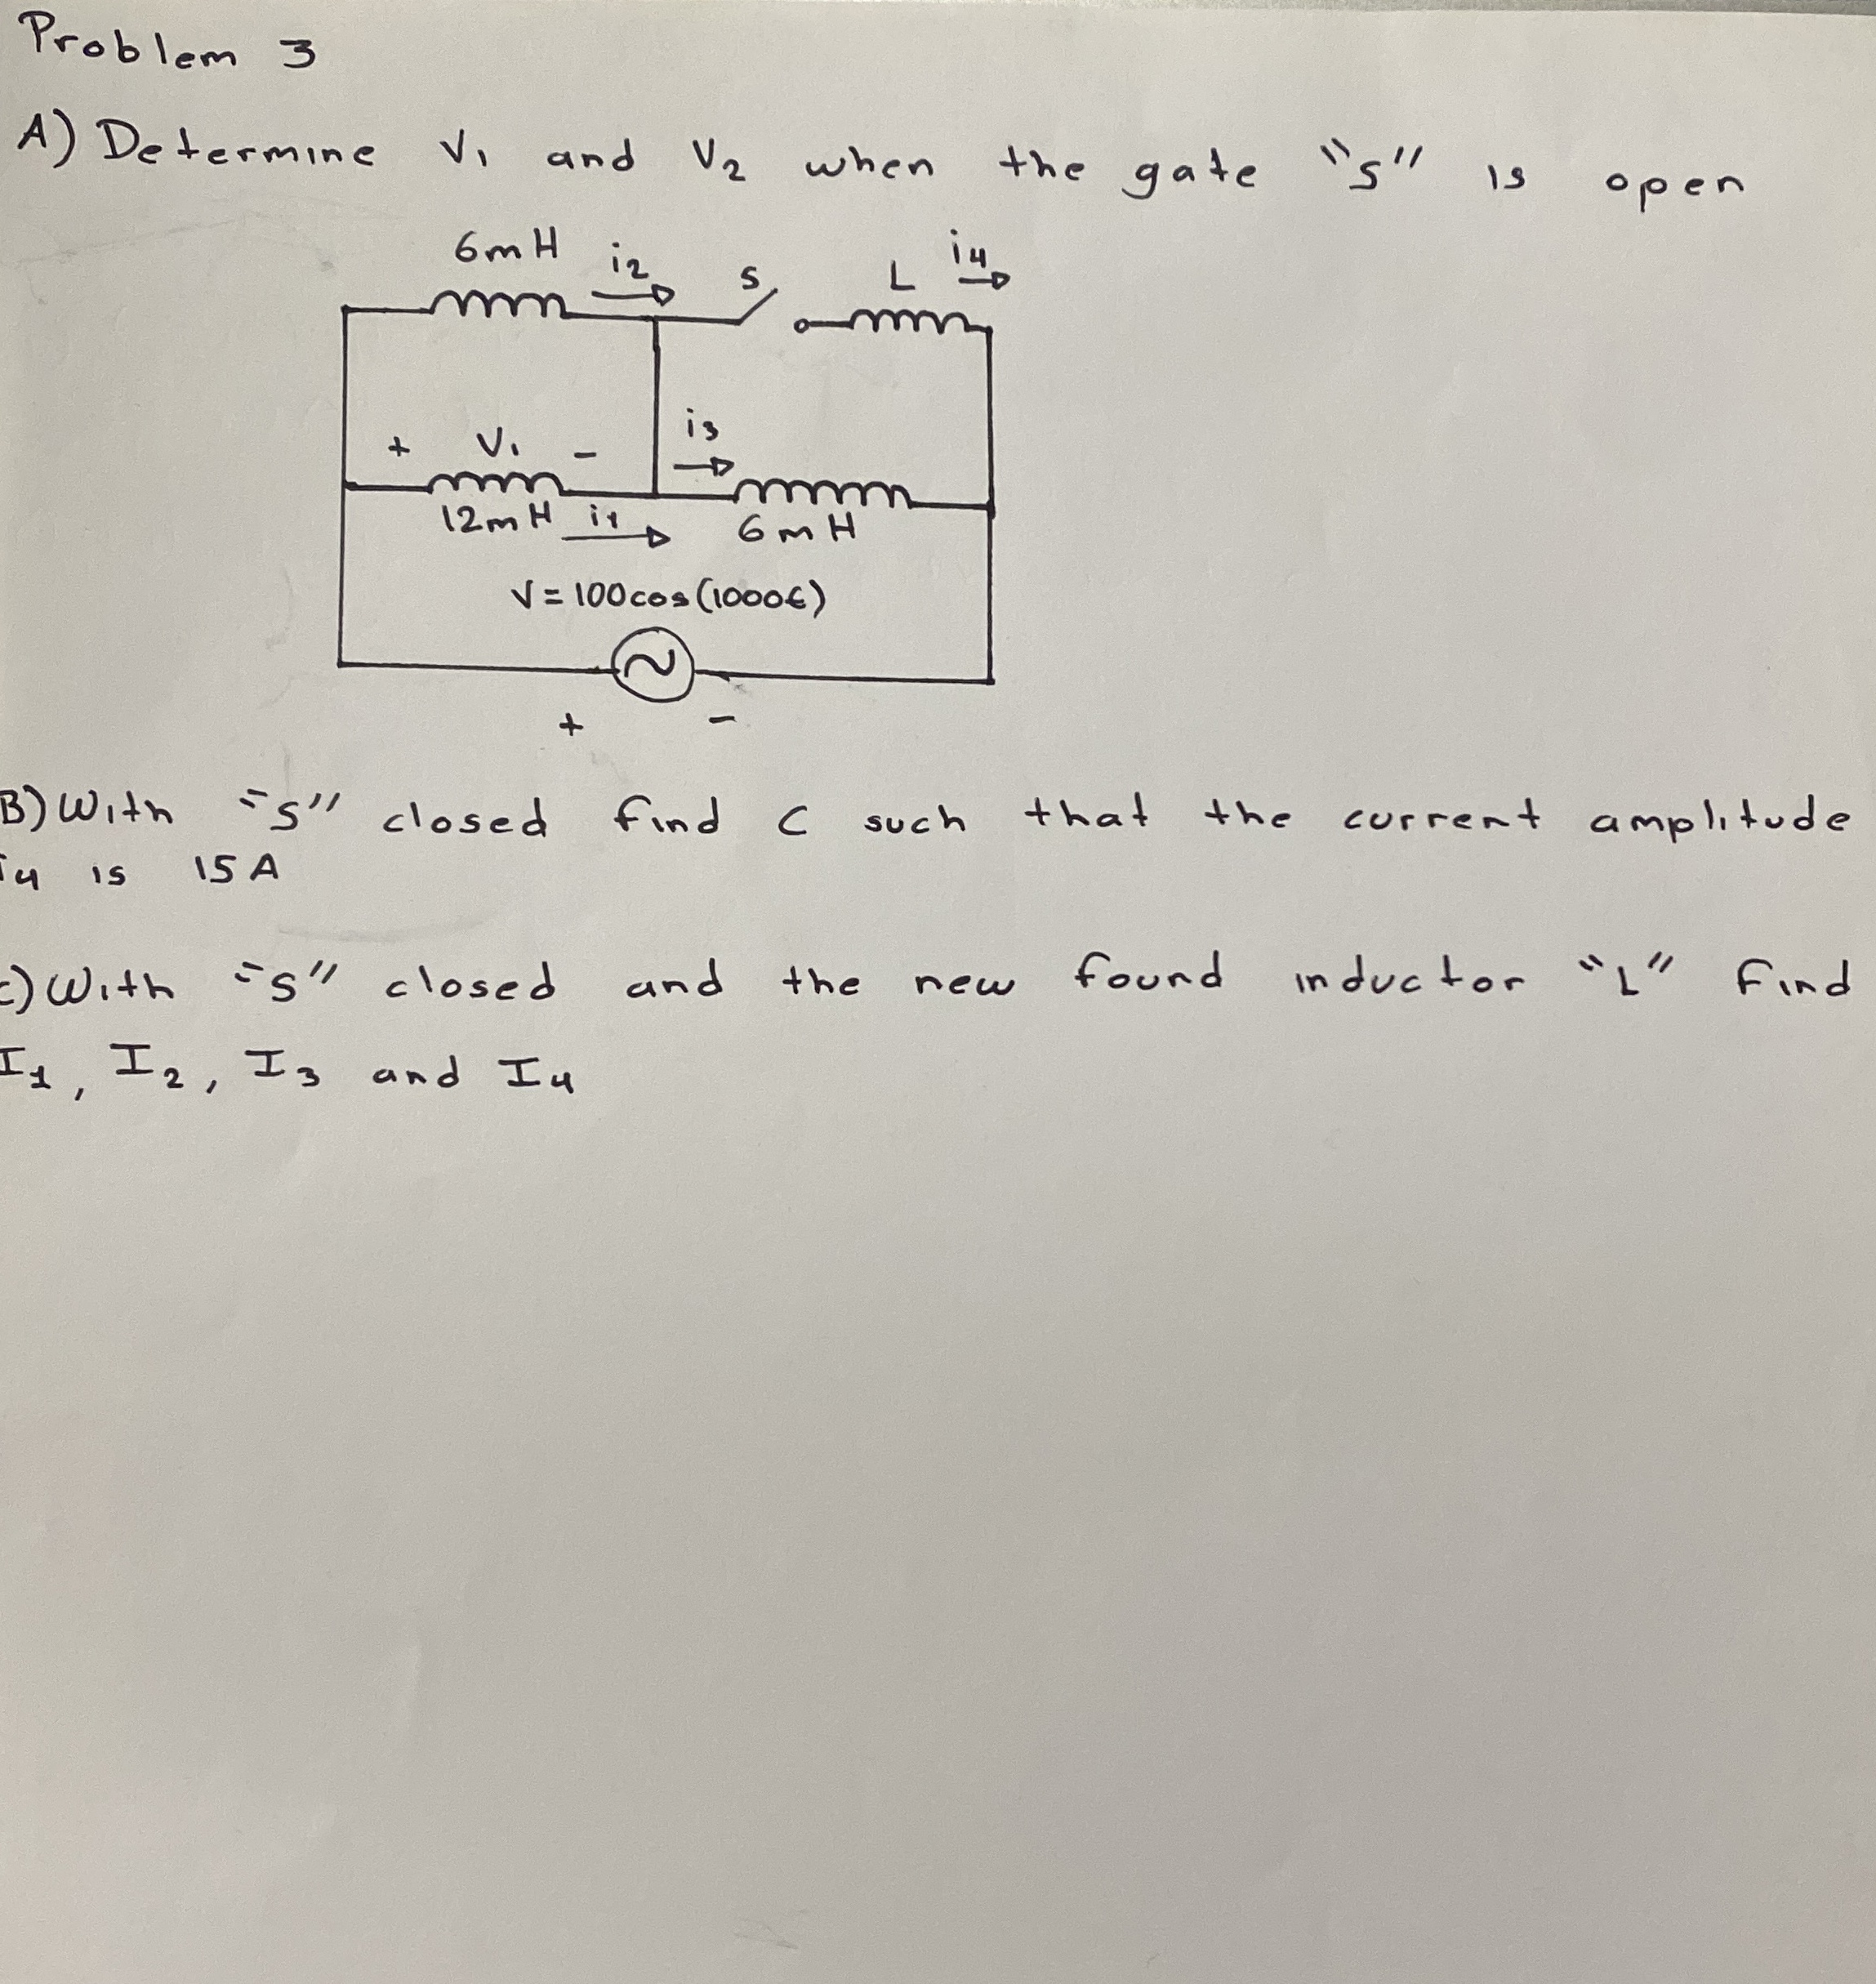 Problem 3
A) Determine V1 and V2 when the gate "S" is open
6mH i2 S L i4
+ V1 - i3
12mH i1 6mH
V=100cos(1000t)
+ -
B) With "S" closed find C such that the current amplitude
i4 is 15A
C) With "S" closed and the new found inductor "L" find
I1, I2, I3 and I4